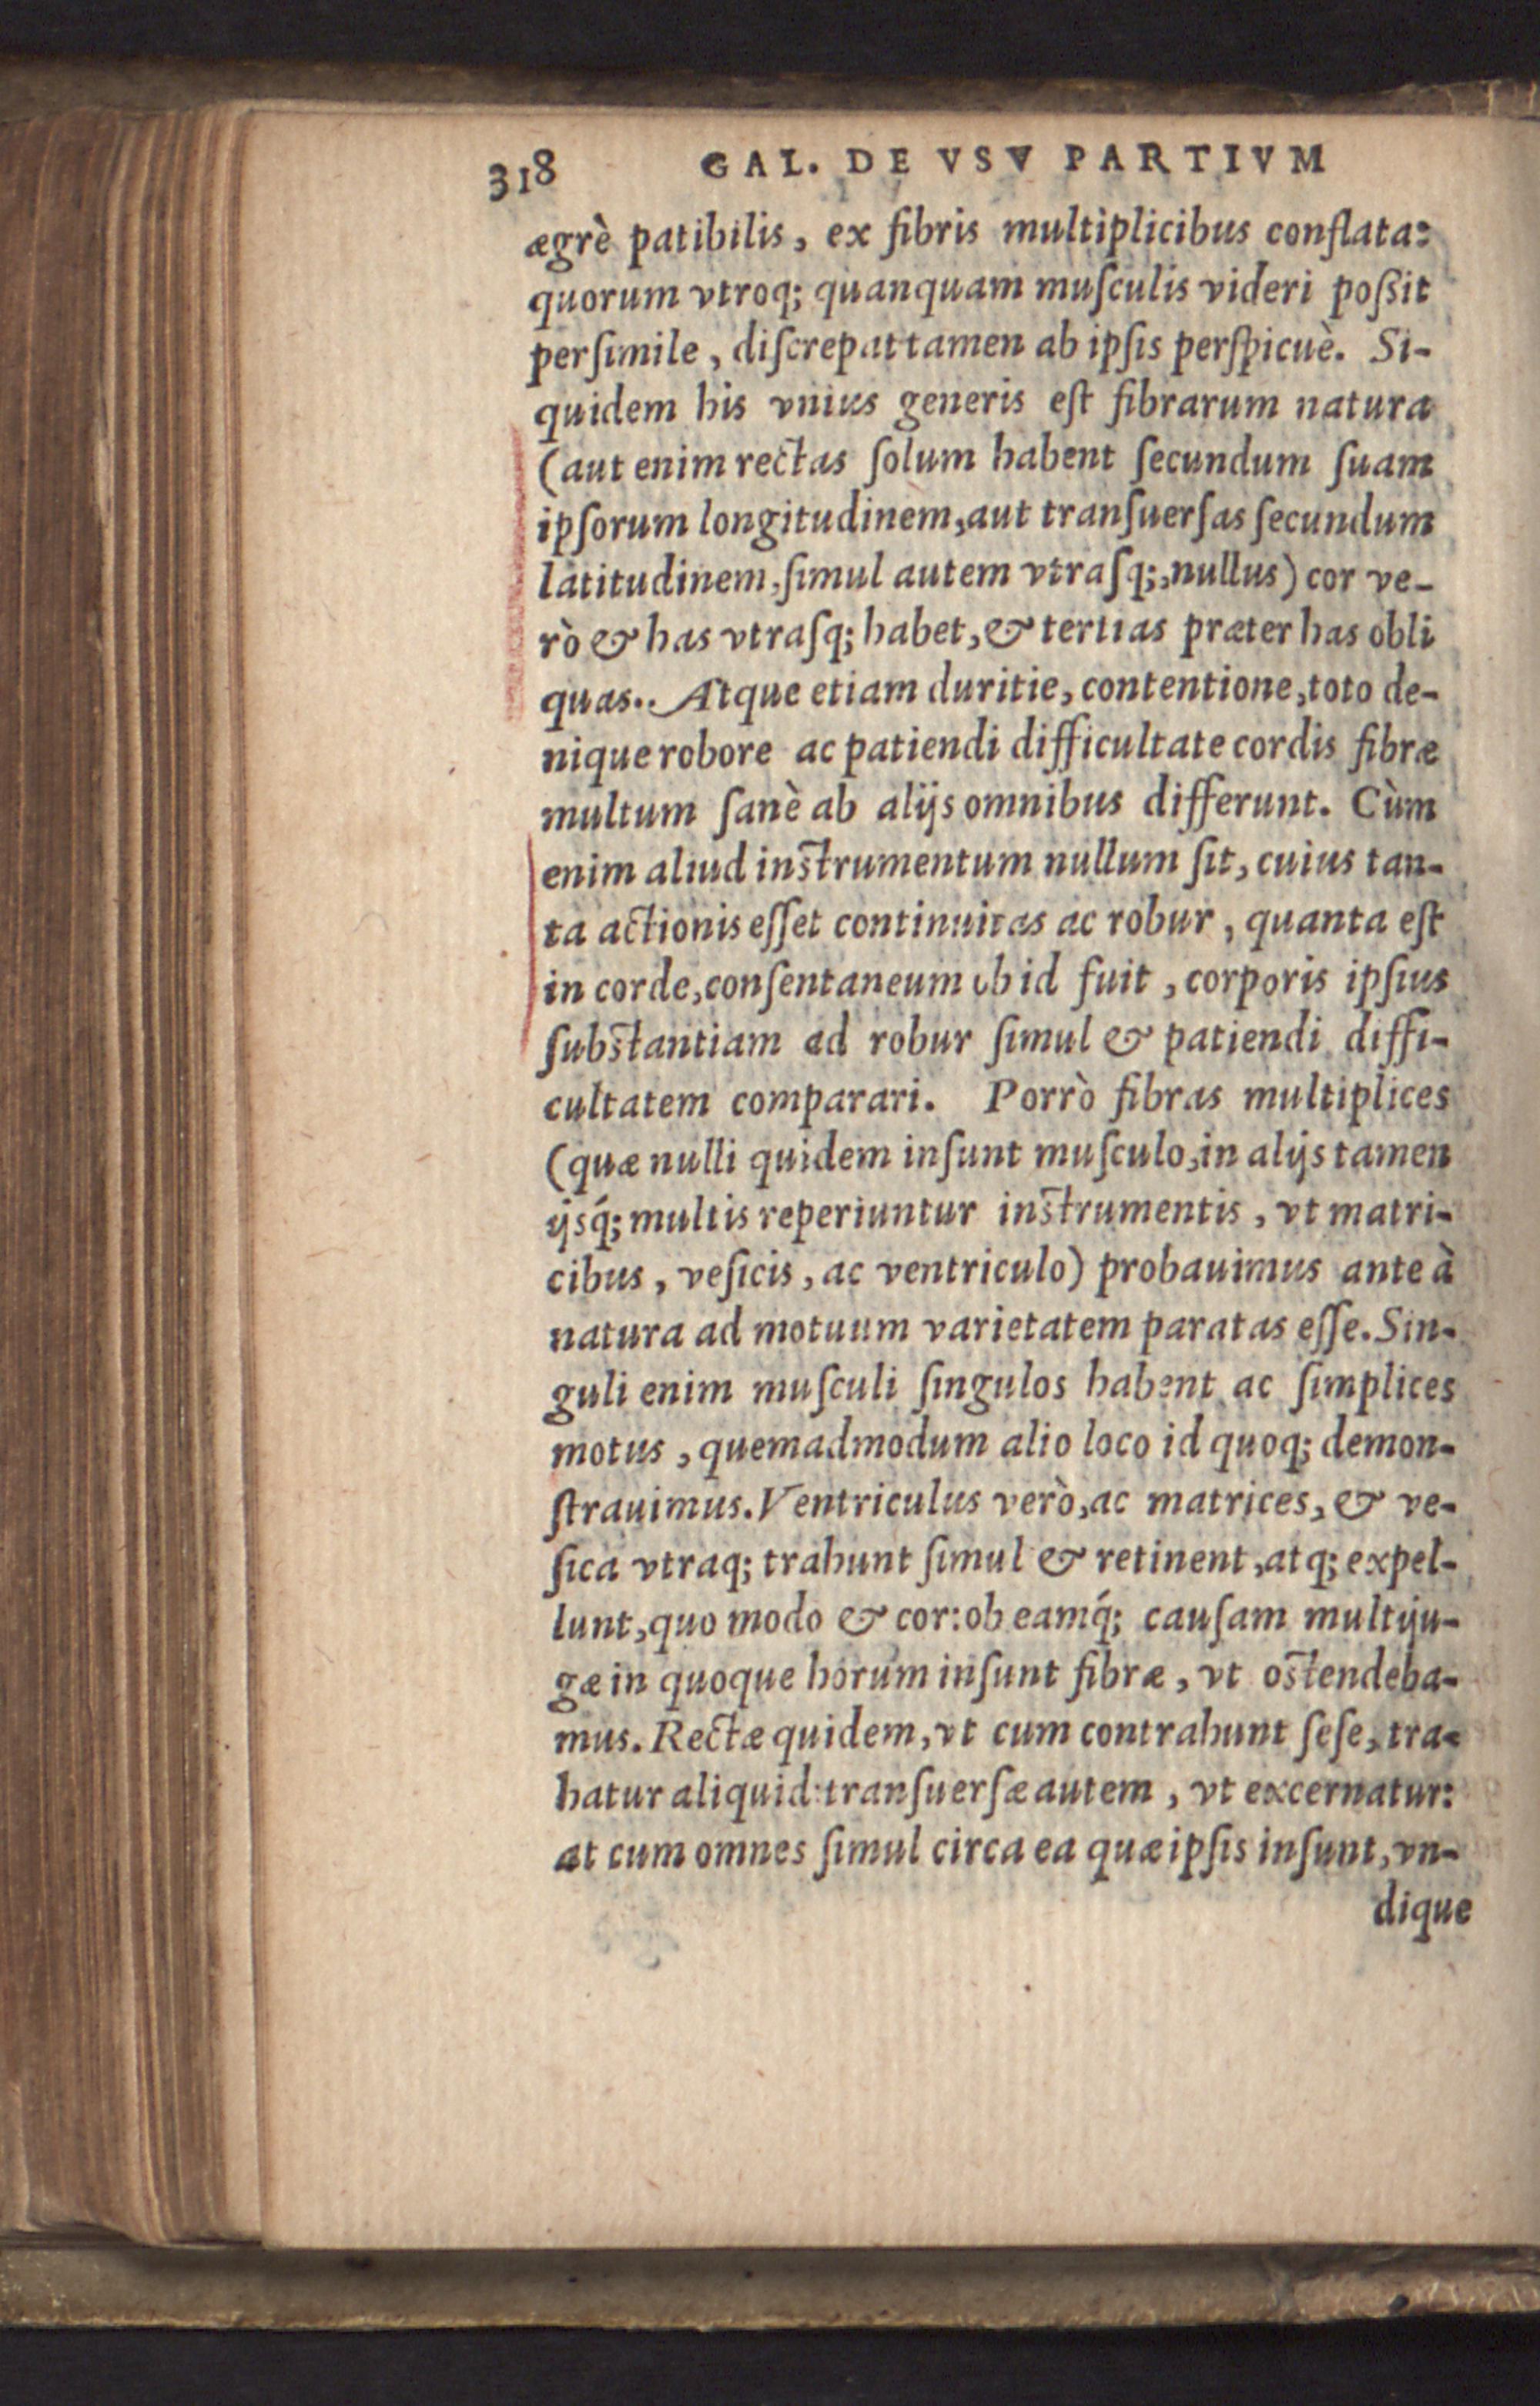 318 GAL. DE VSV PARTIVM
ægrè patibilis, ex fibris multiplicibus conflata:
quorum vtroq; quanquam muſculis videri poßit
perſimile, diſcrepat tamen ab ipſis perſpicuè. Si-
quidem his vnius generis eſt fibrarum natura
(aut enim rectas ſolum habent ſecundum ſuam
ipſorum longitudinem, aut tranſuerſas ſecundum
latitudinem, ſimul autem vtraſq;, nullus) cor ve-
rò & has vtraſq; habet, & tertias præter has obli
quas.. Atque etiam duritie, contentione, toto de-
nique robore ac patiendi difficultate cordis fibræ
multum ſanè ab alijs omnibus differunt. Cùm
enim aliud inſtrumentum nullum ſit, cuius tan-
ta actionis eſſet continuitas ac robur, quanta eſt
in corde, conſentaneum ob id fuit, corporis ipſius
ſubſtantiam ad robur ſimul & patiendi diffi-
cultatem comparari. Porrò fibras multiplices
(quæ nulli quidem inſunt muſculo, in alijs tamen
ijsq́; multis reperiuntur inſtrumentis, vt matri-
cibus, veſicis, ac ventriculo) probauimus ante à
natura ad motuum varietatem paratas eſſe. Sin-
guli enim muſculi ſingulos habent ac ſimplices
motus, quemadmodum alio loco id quoq; demon-
ſtrauimus. Ventriculus verò, ac matrices, & ve-
ſica vtraq; trahunt ſimul & retinent, atq; expel-
lunt, quo modo & cor: ob eamq́; cauſam multiju-
gæ in quoque horum inſunt fibræ, vt oſtendeba-
mus. Rectæ quidem, vt cum contrahunt ſeſe, tra-
hatur aliquid: tranſuerſæ autem, vt excernatur:
at cum omnes ſimul circa ea quæ ipſis inſunt, vn-
dique